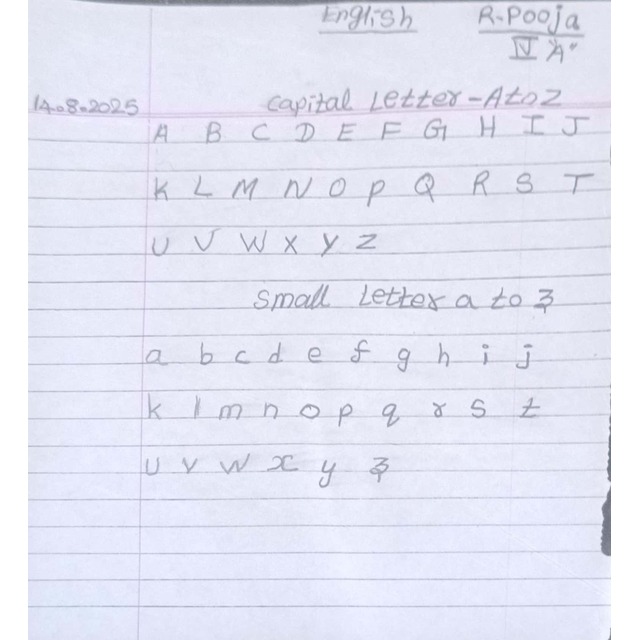 English R.Pooja
IV "A"
14.8.2025 Capital Letter-A to Z
A B C D E F G H I J
K L M N O P Q R S T
U V W X Y Z
Small Letter a to z
a b c d e f g h i j
k l m n o p q r s t
u v w x y z